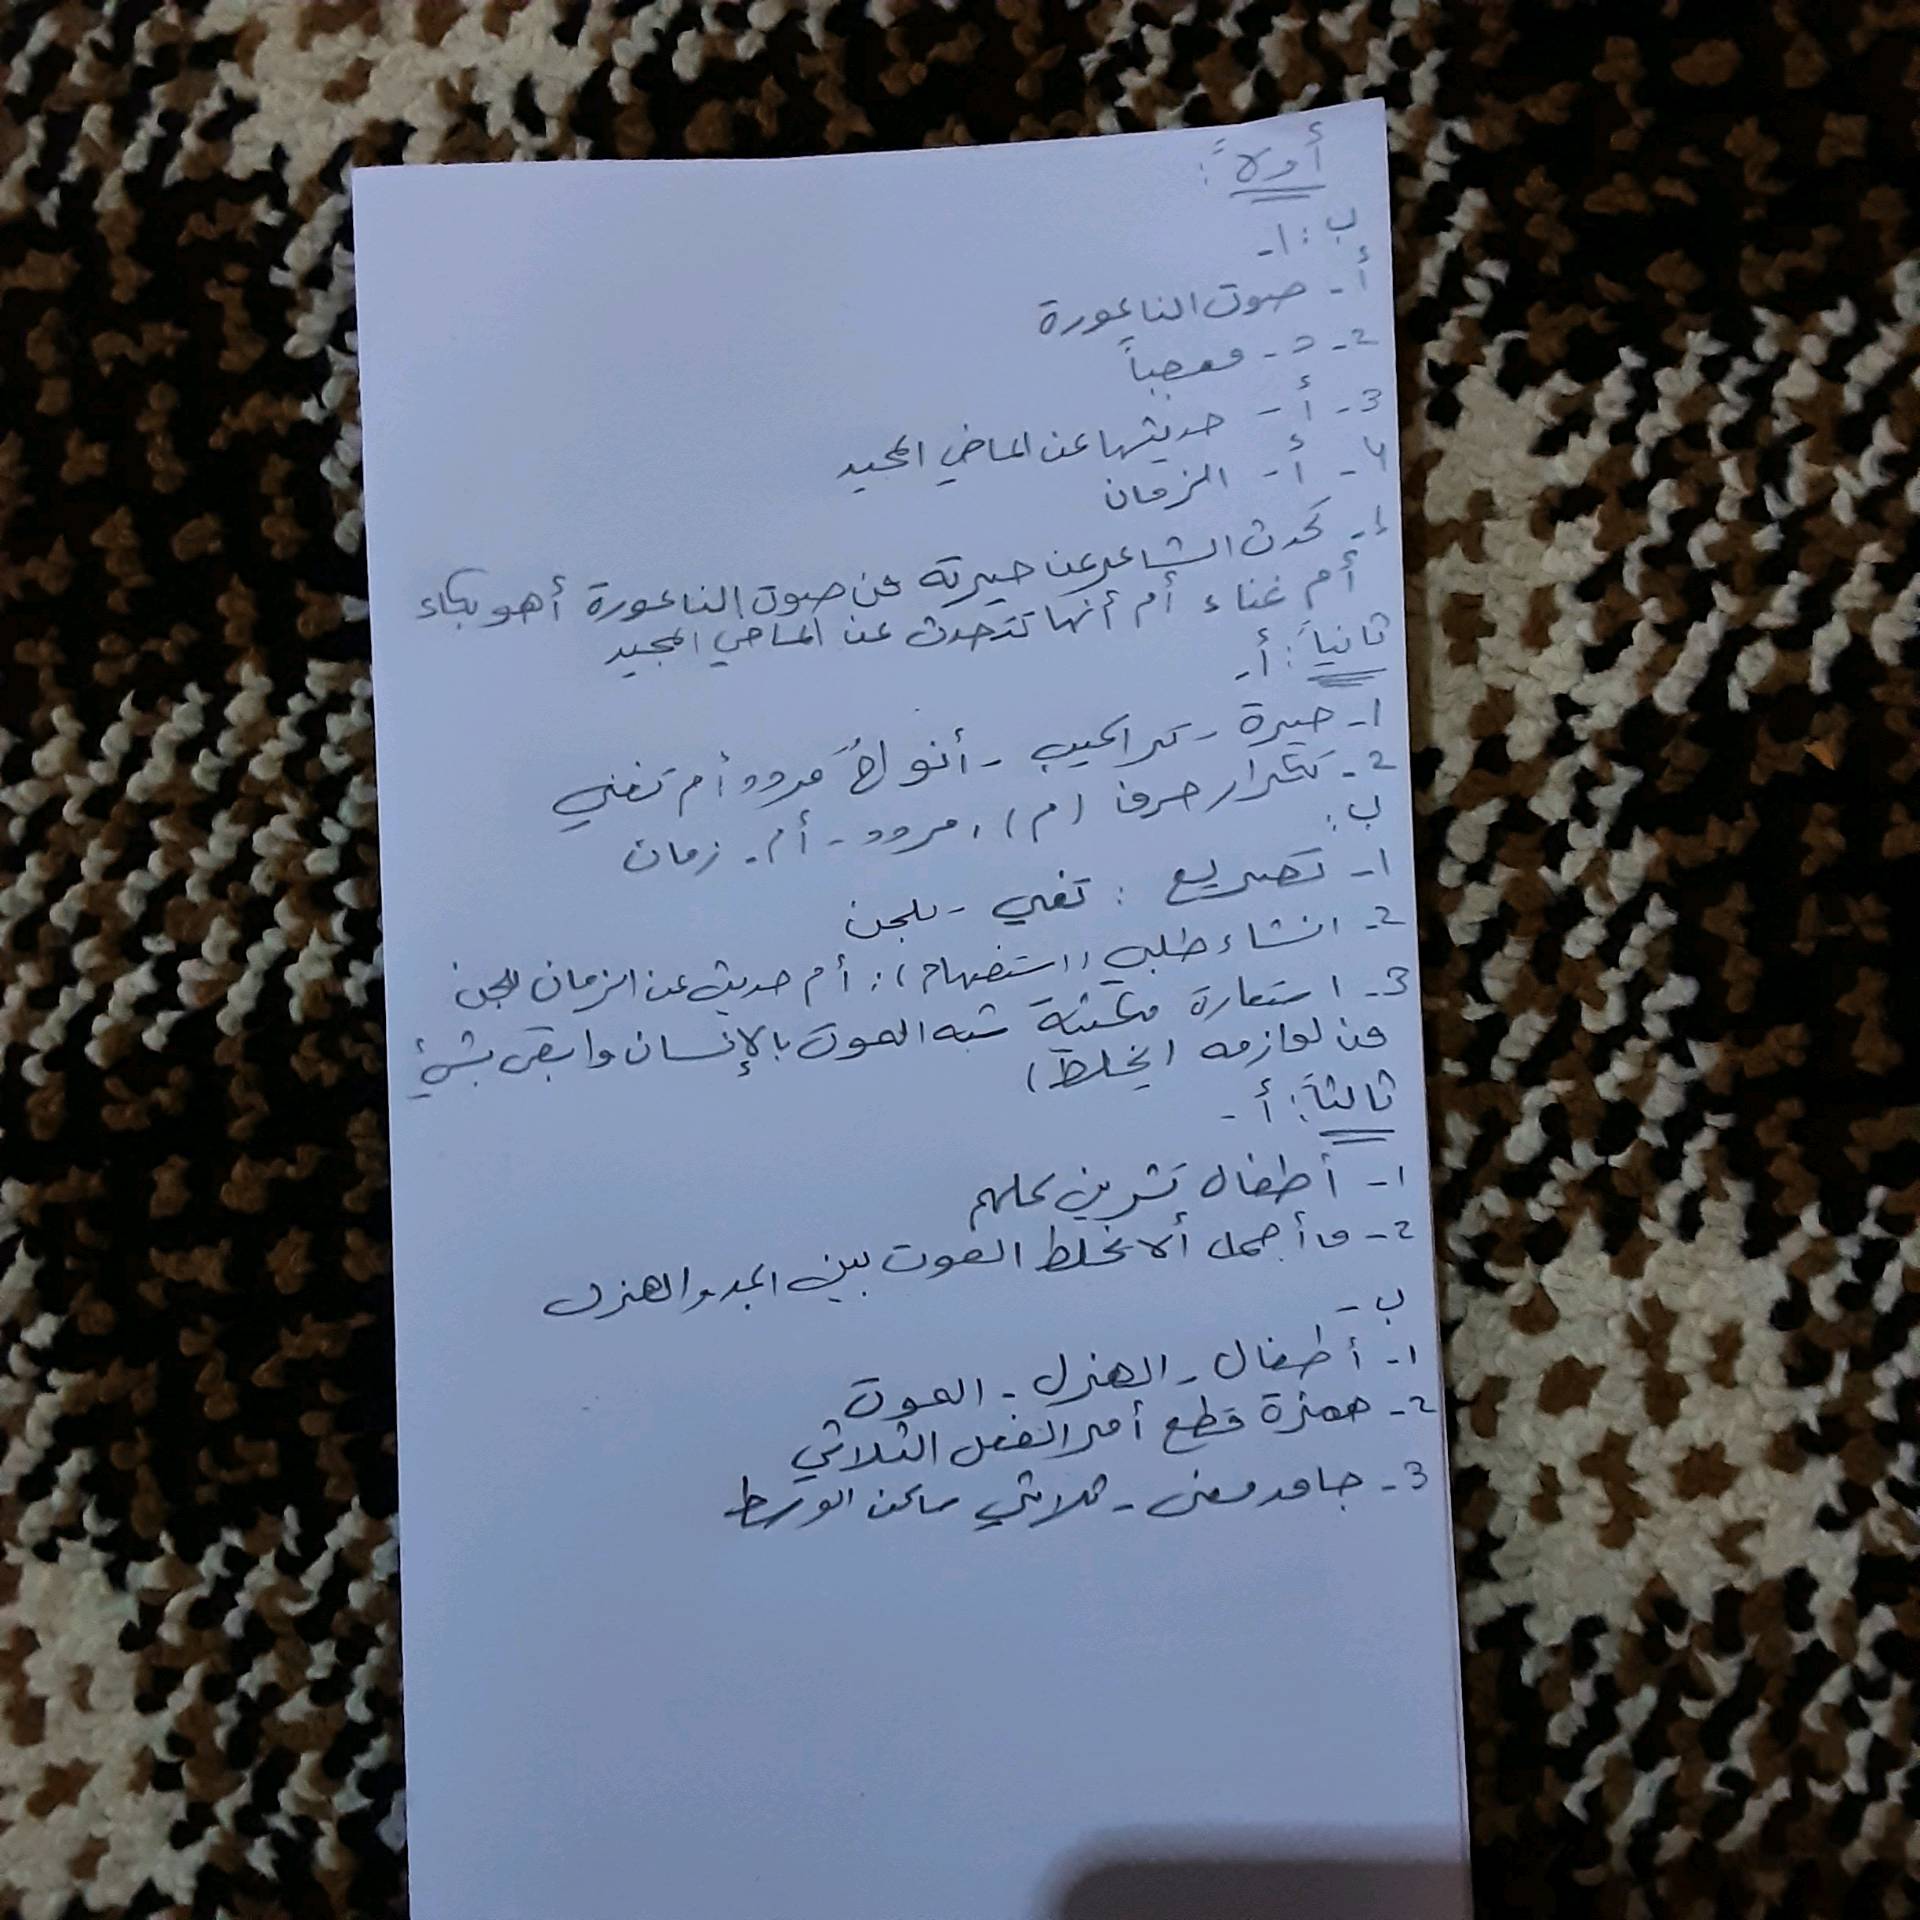 أولاً:
ب: 1-
أ- صوت الناعورة
2- د- معجباً
3- أ- حديثها عن الماضي المجيد
4- أ- الزمان
1- تحدث الشاعر عن حيرته من صوت الناعورة أهو بكاء
أم غناء أم أنها تتحدث عن الماضي المجيد
ثانياً: أ-
1- حيرة - أنواحٌ مردد أم تغني
2- تكرار حرف (م)، مردد - أم - زمان
ب:
1- تصريع : تغني -
2- انشاء طلبي (استفهام): أم حديث عن الزمان
3- استعارة مكنية شبه الموت بالإنسان وابقى بشيء
من لوازمه (يخلط)
ثالثاً: أ-
1- أطفال تشرين كلهم
2- ما أجمل ألا يخلط الموت بين الجد والهزل
ب-
1- أطفال - الهزل - الموت
2- همزة قطع أمر الفعل الثلاثي
3- جامد معنى - ثلاثي ساكن الوسط